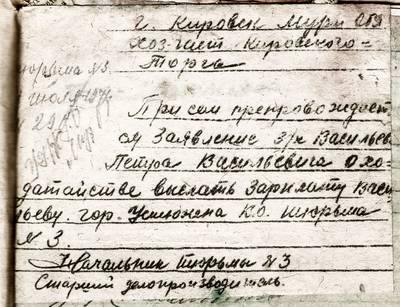 г. Кировск Мурм обл
хоз-част Кировского-
Торга
тюрьма №3.
июля
При сем препровождает
ся Заявление з/к Васильев
Петра Васильевича о хо-
датайстве выслать Зарплату Васи
льеву. гор. Устюжена В.О. тюрьма
№ 3.
Начальник тюрьмы №3
Старший делопроизводитель.